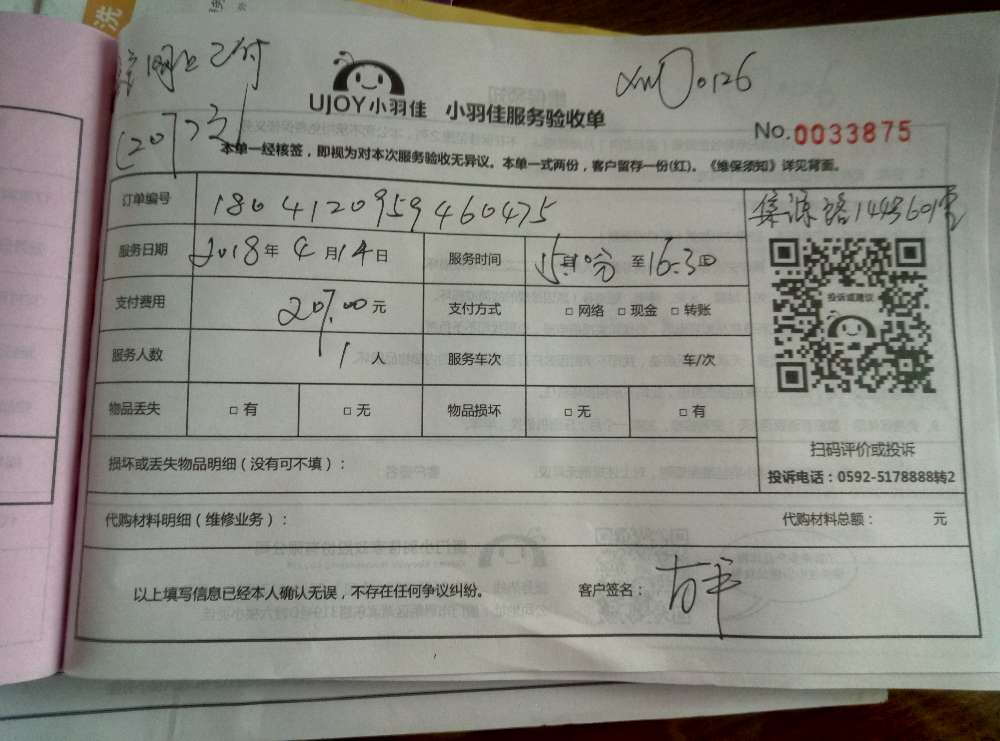 洗
网上已付
XM00126
UJOY小羽佳 小羽佳服务验收单
No.0033875
本单一经核签，即视为对本次服务验收无异议。本单一式两份，客户留存一份(红)。《维保须知》详见背面。
订单编号 1804120959460475
服务日期 2018年4月14日 服务时间 至16:30
支付费用 207.00元 支付方式 □网络 □现金 □转账
服务人数 1人 服务车次 车/次
物品丢失 □有 □无 物品损坏 □无 □有
投诉或建议
扫码评价或投诉
投诉电话：0592-5178888转2
损坏或丢失物品明细（没有可不填）：
代购材料明细（维修业务）： 代购材料总额： 元
以上填写信息已经本人确认无误，不存在任何争议纠纷。 客户签名：